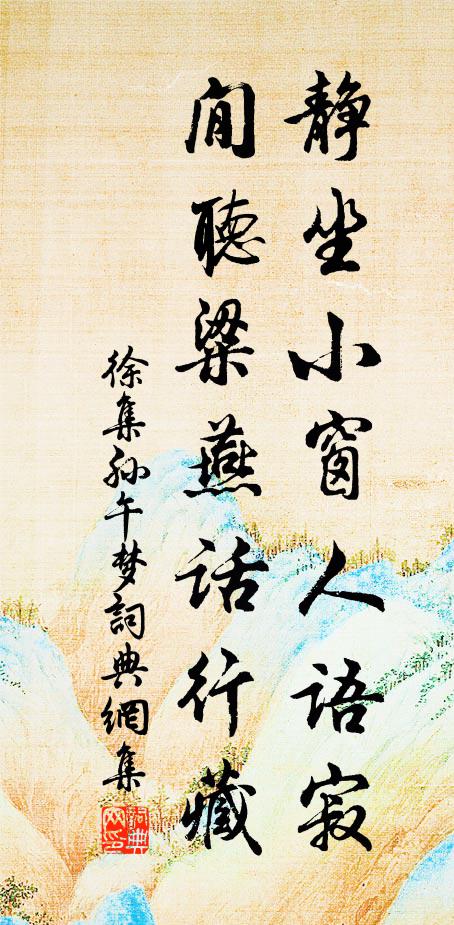 静坐小窗人语寂
闲聽梁燕话行藏
徐集孙午梦詞典網集
詞典网印